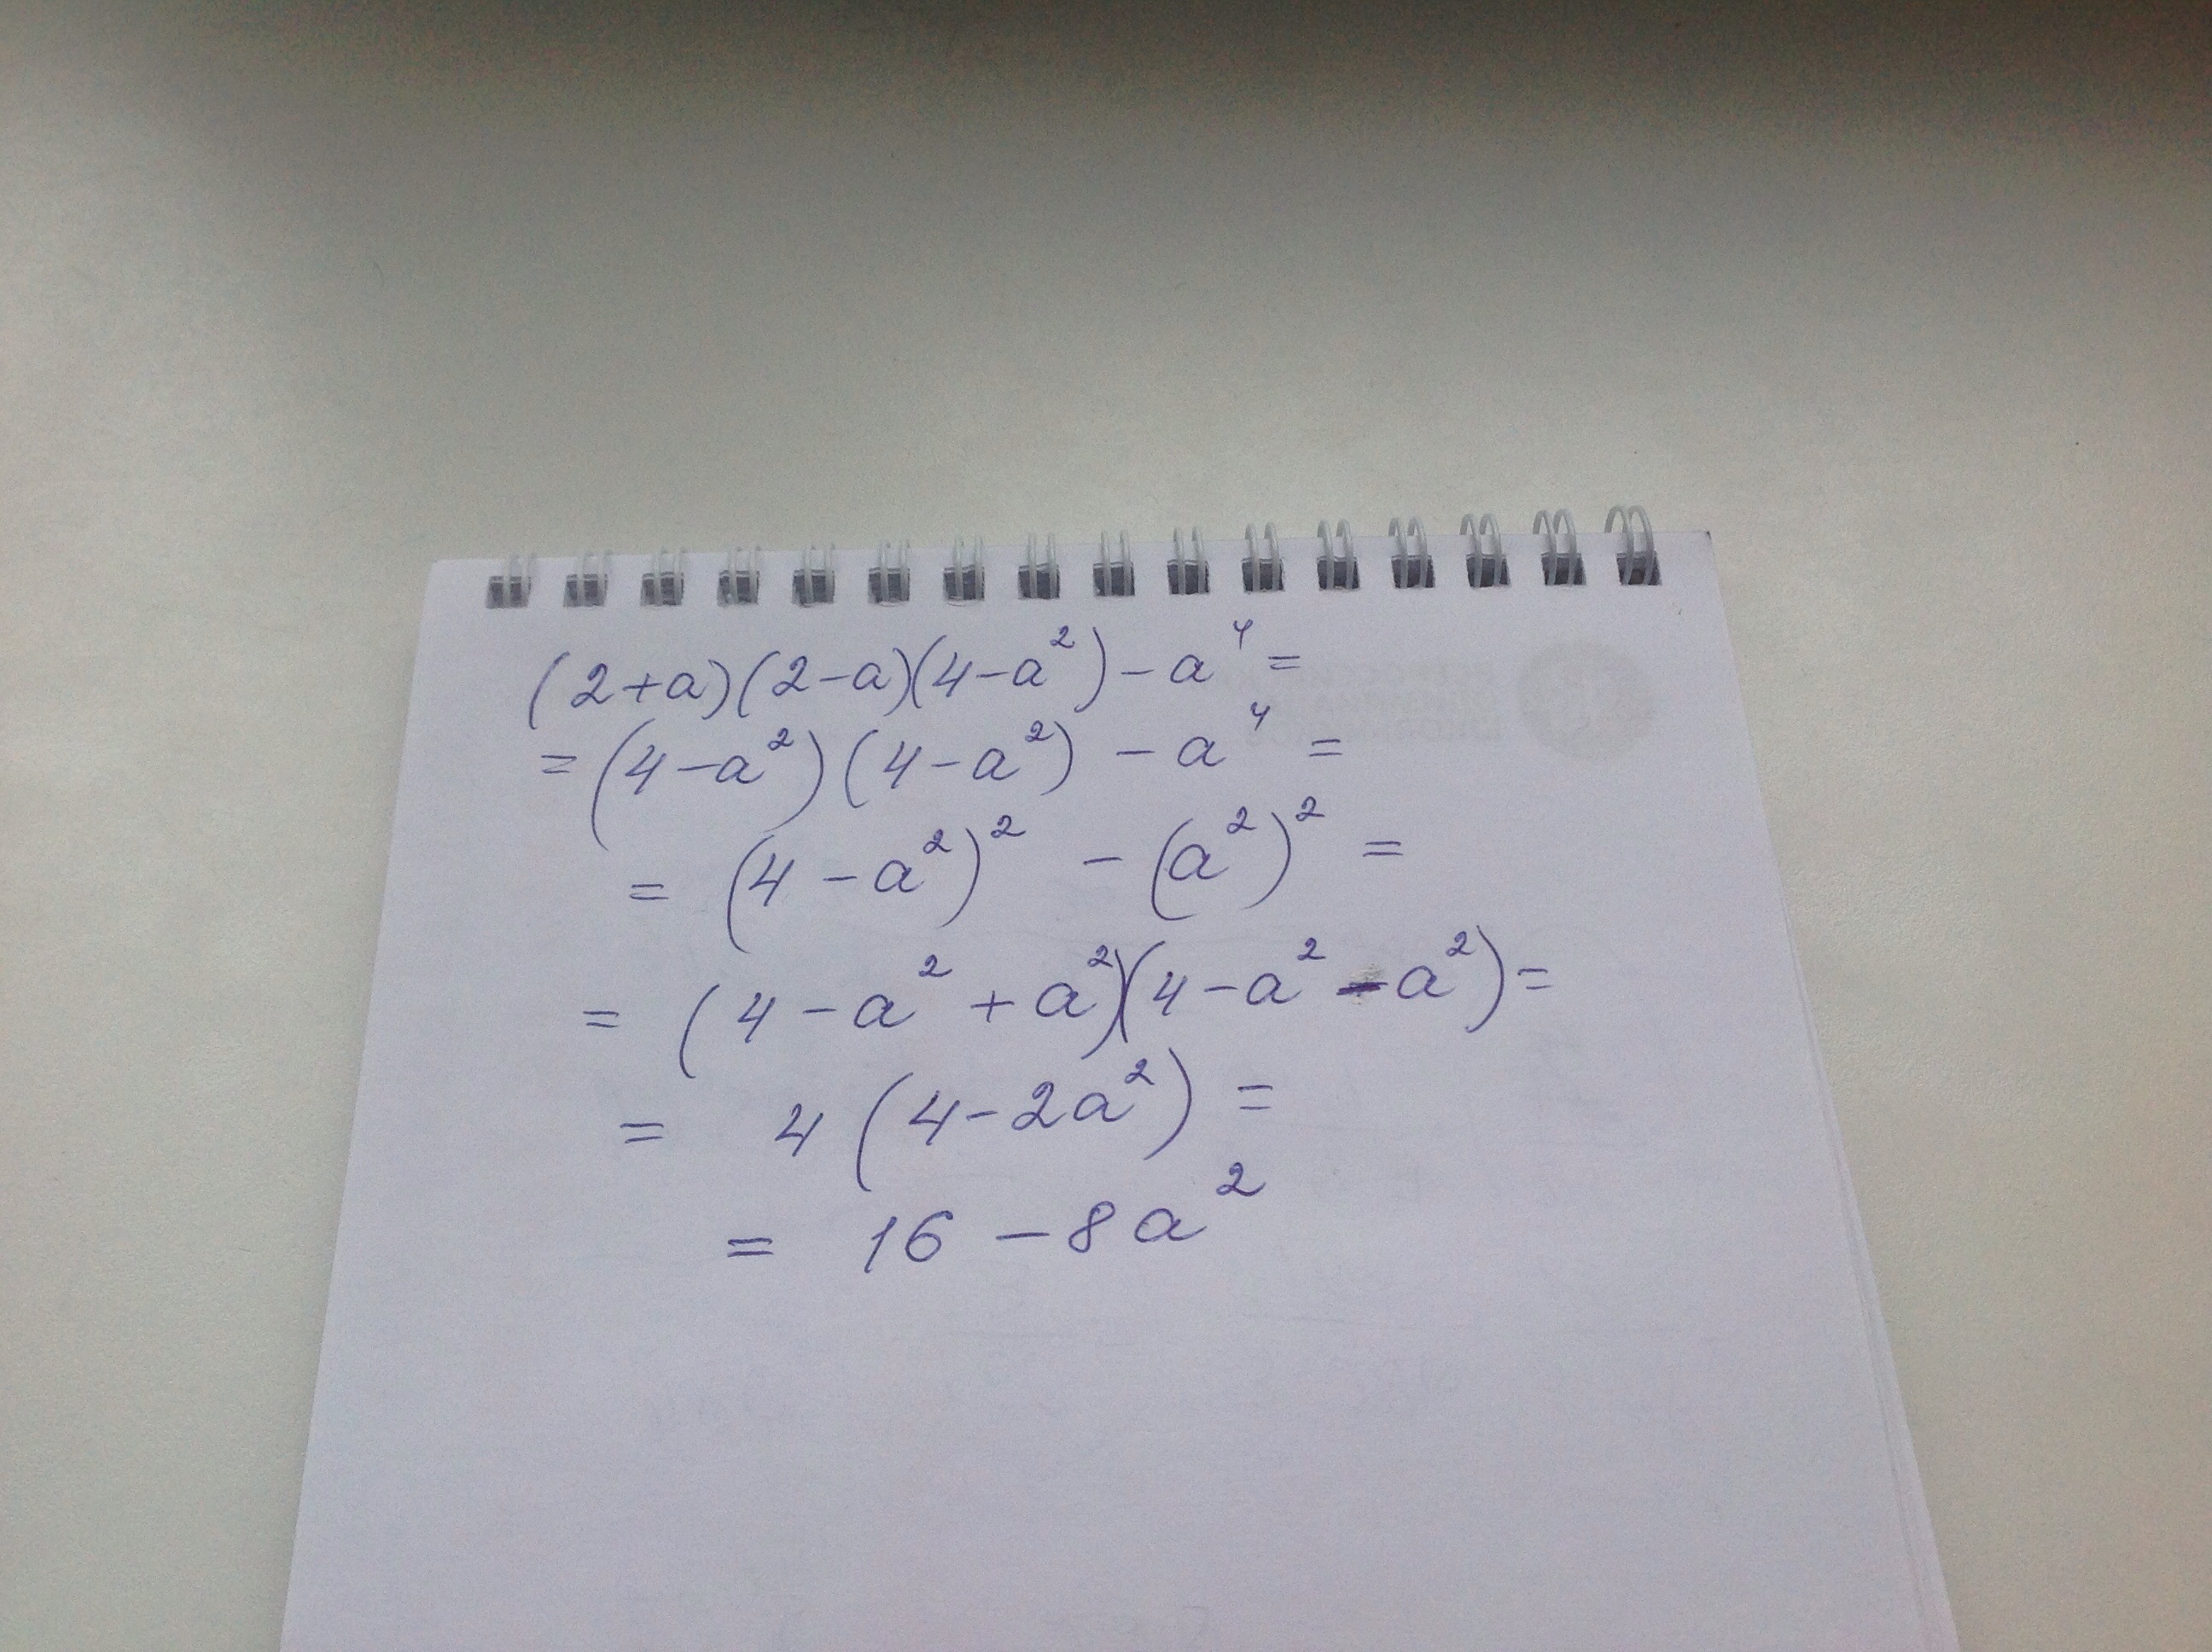 (2+a)(2-a)(4-a²)-a⁴=
=(4-a²)(4-a²)-a⁴=
=(4-a²)²-(a²)²=
=(4-a²+a²)(4-a²-a²)=
=4(4-2a²)=
=16-8a²